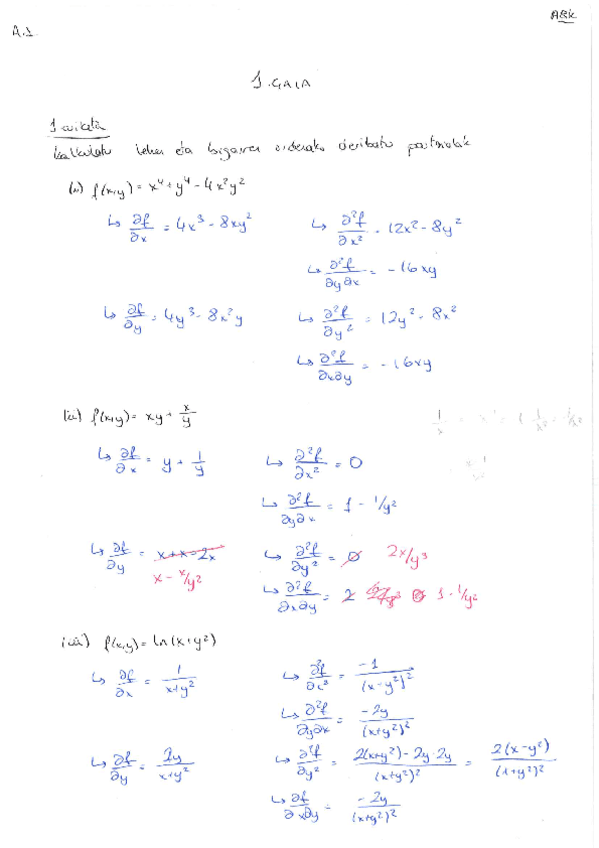 A.1
1. GAIA
1. ariketa
Kalkulatu lehen eta bigarren ordenako deribatu partzialak
f(x,y) = x⁴ + y⁴ - 4x²y²
↳ ∂f/∂x = 4x³ - 8xy² ↳ ∂²f/∂x² = 12x² - 8y²
↳ ∂²f/∂y∂x = -16xy
↳ ∂f/∂y = 4y³ - 8x²y ↳ ∂²f/∂y² = 12y² - 8x²
↳ ∂²f/∂x∂y = -16xy
(ii) f(x,y) = xy + x/y
↳ ∂f/∂x = y + 1/y ↳ ∂²f/∂x² = 0
↳ ∂²f/∂y∂x = 1 - 1/y²
↳ ∂f/∂y = x+x-2x ↳ ∂²f/∂y² = 0 2x/y³
x - x/y² ↳ ∂²f/∂x∂y = 2 1 - 1/y²
iii) f(x,y) = ln(x+y²)
↳ ∂f/∂x = 1/(x+y²) ↳ -1/(x-y²)²
↳ ∂²f/∂y∂x = -2y/(x+y²)²
↳ ∂f/∂y = 2y/(x+y²) ↳ ∂²f/∂y² = (2(x+y²) - 2y·2y)/(x+y²)² = 2(x-y²)/(x+y²)²
↳ ∂f/∂x∂y = -2y/(x+y²)²